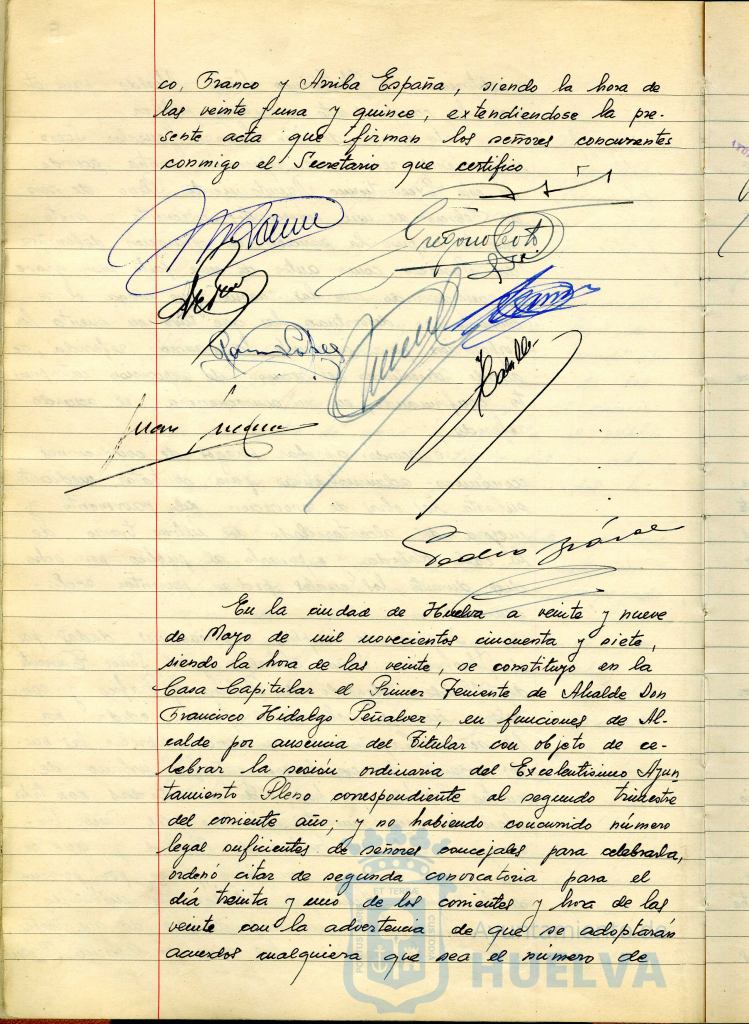 co, Franco y Arriba España, siendo la hora de
las veinte y una y quince, extendiendose la pre-
sente acta que firman los señores concurrentes
conmigo el Secretario que certifico
Gregorio Soto
Juan
Pedro
En la ciudad de Huelva a veinte y nueve
de Mayo de mil novecientos cincuenta y siete,
siendo la hora de las veinte, se constituyo en la
Casa Capitular el Primer Teniente de Alcalde Don
Francisco Hidalgo Peñalver, en funciones de Al-
calde por ausencia del Titular con objeto de ce-
lebrar la sesión ordinaria del Excelentisimo Ayun
tamiento Pleno correspondiente al segundo trimestre
del corriente año; y no habiendo concurrido número
legal suficientes de señores concejales para celebrarla,
ordenó citar de segunda convocatoria para el
día treinta y uno de los corrientes y hora de las
veinte con la advertencia de que se adoptarán
acuerdos cualquiera que sea el número de
HUELVA